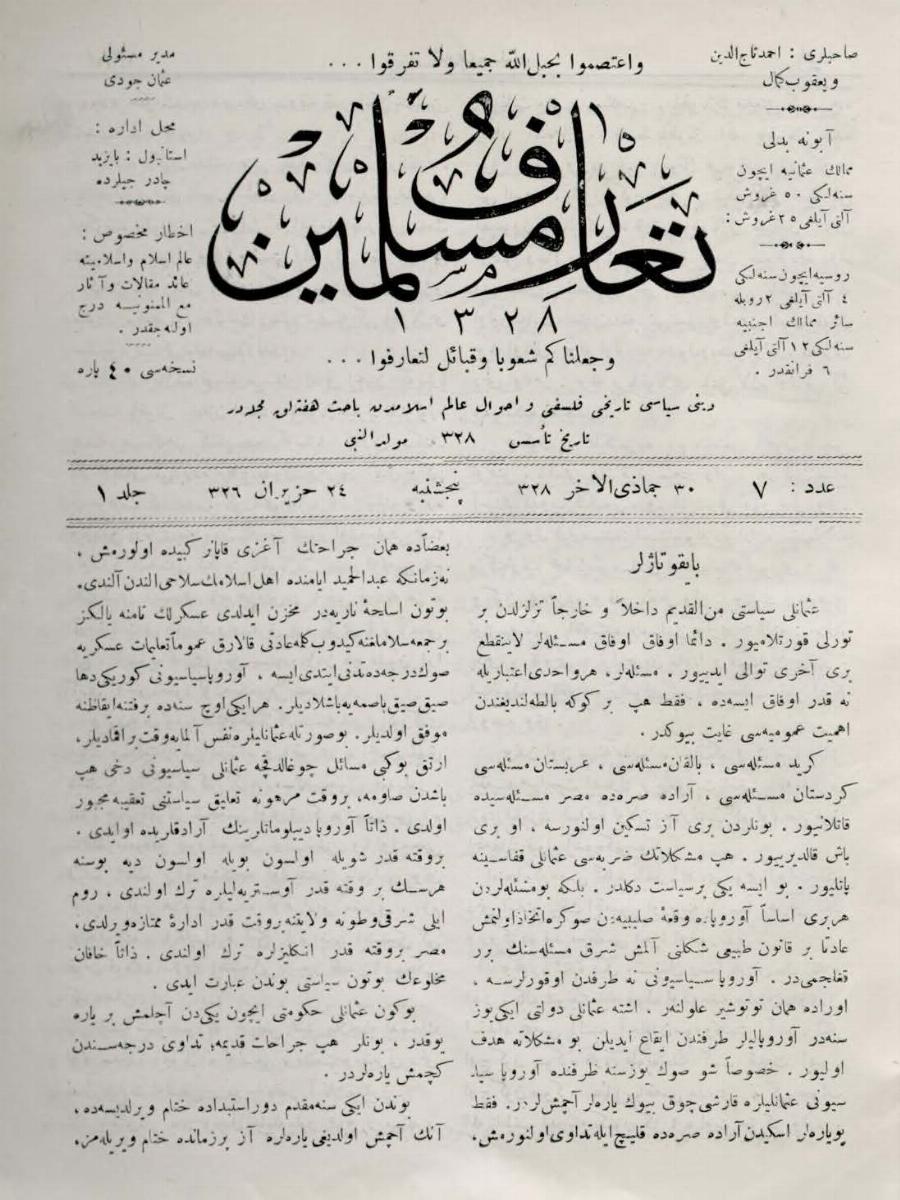 صاحبلری : احمد تاج‌الدین
و یعقوب کمال
آبونه بدلی
ممالك عثمانیه ایچون
سنه‌لكی ٥٠ غروش
آلتی آیلغی ٢٥ غروش :
روسیه ایچون سنه‌لكی
٤ آلتی آیلغی ٢ روبله
سائر ممالك اجنبیه
سنه‌لكی ١٢ آلتی آیلغی
٦ فرانقدر .
واعتصموا بحبل الله جمیعا ولا تفرقوا . . .
تعارف مسلمین
١٣٢٨
وجعلناكم شعوبا وقبائل لتعارفوا . . .
دینی سیاسی تاریخی فلسفی و احوال عالم اسلامدن باحث هفته‌لق مجله‌در
تاریخ تأسس ٣٢٨ مولد النبی
مدیر مسئولی
عثمان جودی
محل اداره :
استانبول : بایزید
چادر جیلرده
اخطار مخصوص :
عالم اسلام واسلامیته
عائد مقالات وآثار
مع الممنونیه درج
اوله‌جقدر .
نسخه‌سی ٤٠ پاره
عدد : ٧ ٣٠ جماذی‌الاخر ٣٢٨ پنجشنبه ٢٤ حزیران ٣٢٦ جلد ١
بایقوتاژلر
عثمانلی سیاستی من‌القدیم داخلاً و خارجاً تزلزلدن بر
تورلی قورتلامیور . دائما اوفاق اوفاق مسئله‌لر لاینقطع
بری آخری توالی ایدییور . مسئله‌لر، هر واحدی اعتباریله
نه قدر اوفاق ایسه‌ده ، فقط هپ بر كوكه بالطه‌لندیغندن
اهمیت عمومیه‌سی غایت بیوكدر .
كرید مسئله‌سی ، بالقان مسئله‌سی ، عربستان مسئله‌سی
كردستان مسئله‌سی ، آراده صره‌ده مصر مسئله‌سیده
قاتلانیور . بونلردن بری آز تسكین اولنورسه ، او بری
باش قالدیرییور . هپ مشكلاتك ضربه‌سی عثمانلی قفاسینه
پاتلیور . بو ایسه یكی بر سیاست دكلدر . بلكه بو مسئله‌لردن
هر بری اساساً آوروپاده وقعهٔ صلیبیه‌دن صوكره اتخاذ اولنمش
عادتا بر قانون طبیعی شكلنی آلمش شرق مسئله‌سنك برر
قغلجمی‌در . آوروپا سیاسیونی نه طرفدن اوقورلرسه ،
اوراده همان توتوشیر علولنه‌ر . اشته عثمانلی دولتی ایكی یوز
سنه‌در آوروپالیلر طرفندن ایقاع ایدیلن بو مشكلاته هدف
اولیور . خصوصاً شو صوك یوز سنه ظرفنده آوروپا سیا
سیونی عثمانلیلره قارشی چوق بیوك یاره‌لر آچمش‌لردر. فقط
بویاره‌لر اسكیدن آراده صره‌ده قلیچ ایله تداوی اولنورمش،
بعضاً‌ده همان جراحتك آغزی قاپانر كبیده اولورمش ،
نه زمانكه عبدالحمید ایامنده اهل اسلامك سلاحی الندن آلندی.
بوتون اسلحهٔ ناریه‌در مخزن ایدلدی عسكرلك نامنه یالكز
بر جمعه سلاملغنه كیدوب كلمه عادتی قالارق عموماً تعلیمات عسكریه
صوك درجه‌ده تدنی ایتدی ایسه ، آوروپا سیاسیونی كوریكی دها
صیق صیق باصمه‌یه باشلادیلر. هر ایكی اوچ سنه‌ده بر فتنه ایقاظنه
موفق اولدیلر. بو صورتله عثمانلیلره نفس آلمایه وقت براقمادیلر،
ارتق بوكبی مسائل چوغالدقجه عثمانلی سیاسیونی دخی هپ
باشدن صاومه، بر وقت مرهونه تعلیق سیاستنی تعقیبه مجبور
اولدی . ذاتاً آوروپا دیپلوماتلرینك آرادقلریده او ایدی .
بر وقته قدر شویله اولسون بویله اولسون دیه بوسنه
هرسك بر وقته قدر آوستریه‌لیلره ترك اولندی ، روم
ایلی شرقی و طونه ولایتنه بروقت قدر ادارهٔ ممتازه ویرلدی،
مصر بروقته قدر انكلیزلره ترك اولندی . ذاتاً خاقان
مخلوعك بوتون سیاستی بوندن عبارت ایدی .
بوكون عثمانلی حكومتی ایچون یكیدن آچلمش بر یاره
یوقدر ، بونلر هپ جراحات قدیمه؛ تداوی درجه‌سندن
كچمش یاره‌لردر .
بوندن ایكی سنه مقدم دور استبداده ختام ویرلدیسه‌ده،
آنك آچمش اولدیغی یاره‌لره آز بر زمانده ختام ویریله‌مز.